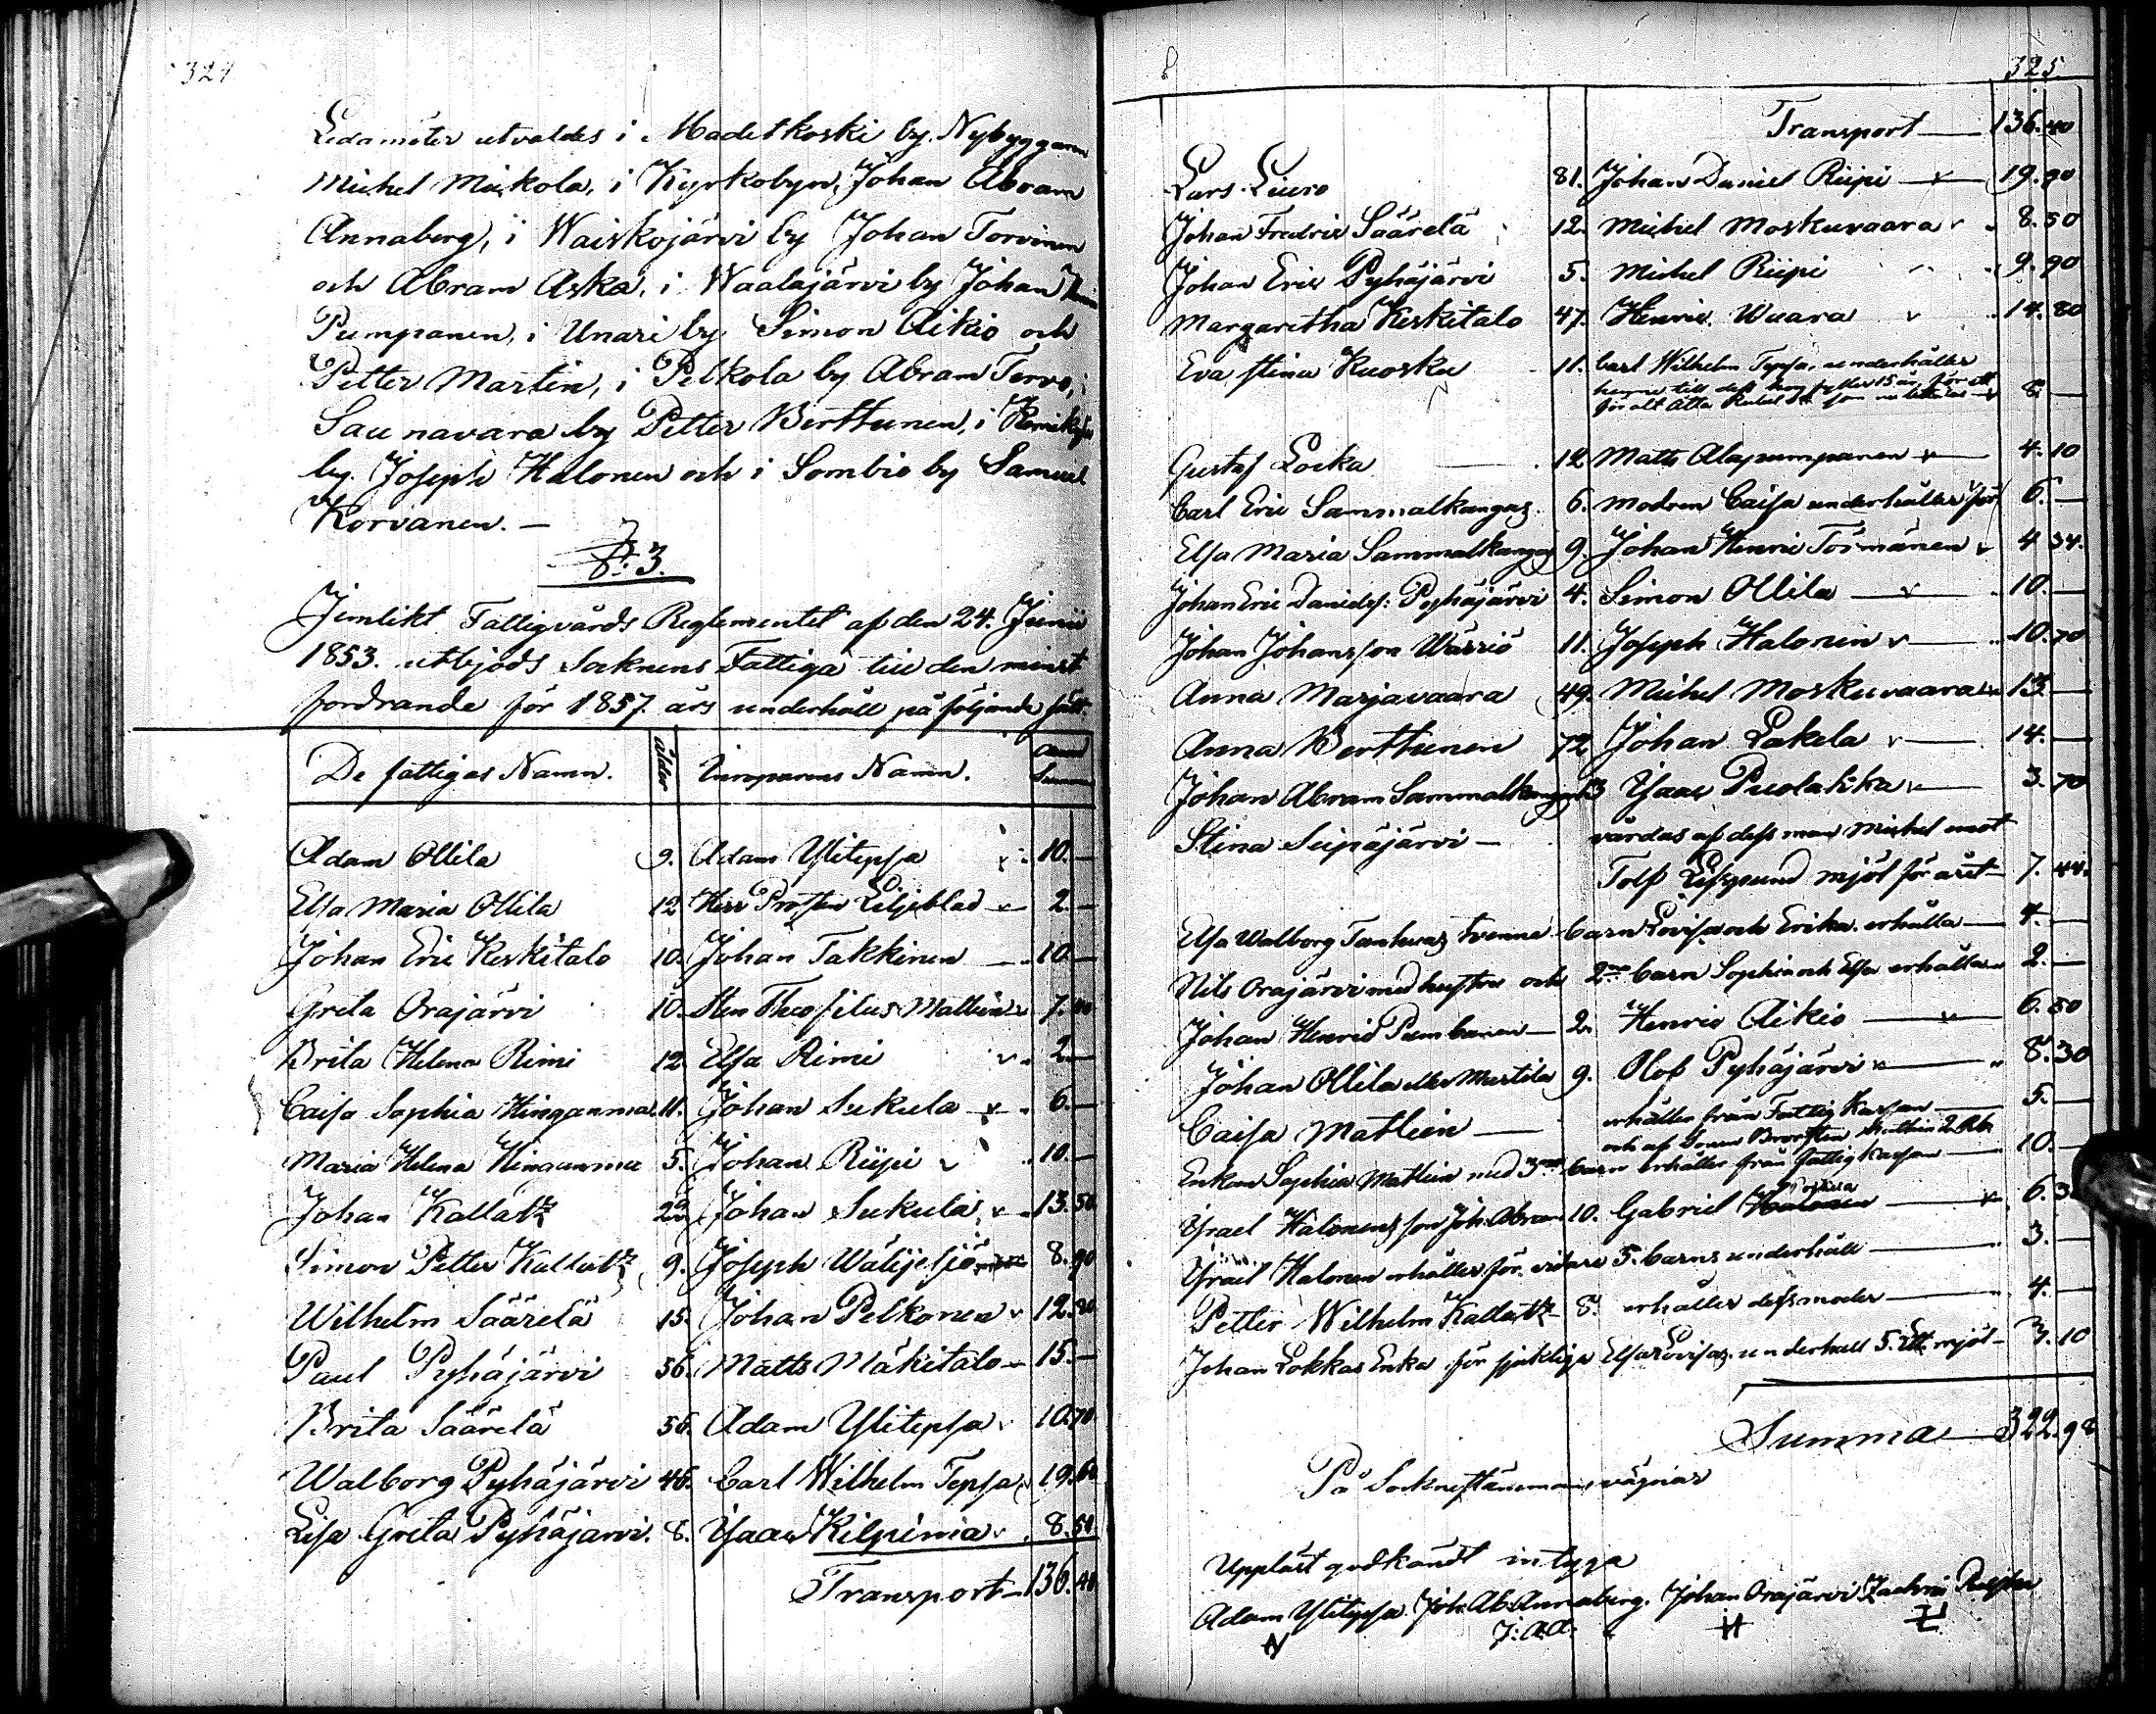 324
Ledamöter utvaldes i Madetkoski by Nybyggaren
Michel Mickola, i Kyrkobyn, Johan Abram
Annaberg, i Waiskojärvi by Johan Torvinen
och Abram Aska, i Waalajärvi by Johan
Pumpanen, i Unari by Simon Aikio och
Petter Martin, i Pelkola by Abram Tervo, i
Saunavara by Petter Berttunen, i
by Joseph Halonen och i Sombio by Samuel
Korvanen. —
§. 3.
Jemlikt Fattigvårds Reglementet af den 24. Junii
1853. utbjöds Socknens Fattiga till den minst
fordrande för 1857. års underhåll på följande sätt.
De fattigas Namn. ålder Inropparens Namn. Summa
Adam Ollila 9. Adam Ylitepsa 10. —
Elsa Maria Ollila 12 Herr Prosten Liljeblad 2. —
Johan Eric Keskitalo 10. Johan Takkinen 10. —
Greta Orajärvi 10. Sten Theofilus Matlein 7.
Brita Helena Rimi 12. Elsa Rimi 2 —
Caisa Sophia Hinganmaa 11. Johan Sukula 6. —
Maria Helena Hinganmaa 5. Johan Riipi 10. —
Johan Kallatz 22 Johan Sukula 13. 50
Simon Petter Kallatz 9. Joseph 8. 90
Wilhelm Säärelä 15. Johan Pelkonen 12. 80
Paul Pyhäjärvi 56. Matts Mäkitalo 15. —
Brita Säärelä 56. Adam Ylitepsa 10. 70
Walborg Pyhäjärvi 46. Carl Wilhelm Tepsa 19. 60
Lisa Greta Pyhäjärvi. 8. Isaac Kilpimia 8. 50
Transport — 136. 40
325.
Transport — 136. 40
Lars Luiro 81. Johan Daniel Riipi 19. 90
Johan Fredric Säärelä 12. Michel Moskuvaara 8. 50
Johan Eric Pyhäjärvi 5. Michel Riipi 9. 90
Margaretha Keskitalo 47. Henric Waara 14. 80
Eva Stina Kuosku 11. Carl Wilhelm Tepsa, underhåller
henne till dess hon fyller 15 år för ett
för allt åtta Rubel 8. —
Gustaf Locka 12 Matts Alapumpanen 4. 10
Carl Eric Sammalkangas 6. Modren Caisa underhåller för 6. —
Elsa Maria Sammalkangas 9. Johan Henric Törmänen 4 34.
Johan Eric Danielss: Pyhäjärvi 4. Simon Ollila 10. —
Johan Johansson Wärriö 11. Joseph Halonen 10. 70
Anna Marjavaara 49. Michel Moskuvaara 13. —
Anna Berttunen 72 Johan Lakela 14. —
Johan Abram Sammalkangas 13 Isaac Puolakka 3. 70
Stina Seipäjärvi — vårdas af dess man Michel mot
Tolf Lispund mjöl för året 7. 44.
Elsa Walborg Tanhuas tvenne barn Lovisa och Erika erhålla 4. —
Nils Orajärvi med hustru och 2ne barn Sophia och Elsa erhåller 2. —
Johan Henric Pumbanen 2. Henric Aikio 6. 50
Johan Ollila eller Martila 9. Olof Pyhäjärvi 8. 30
Caisa Matlein — erhåller från Fattig Kassan 5. —
och af Sonen
Enkan Sophia Matlein med 3ne barn erhåller från fattig kassan 10. —
Israel Halonens son Joh. Abram 10. Gabriel 6.
Israel Halonen erhåller för vidare 5. barns underhåll 3. —
Petter Wilhelm Kallatz 8. erhåller dess moder 4. —
Johan Lokkas Enka för sjukliga Elsa Lovisas underhåll 5. mjöl 3. 10
Summa — 322. 98
På Sockenstämmans vägnar
Uppläst godkändt intyga
Adam Ylitepsa. Joh. Ab. Annaberg. Johan Orajärvi
J. A. A.